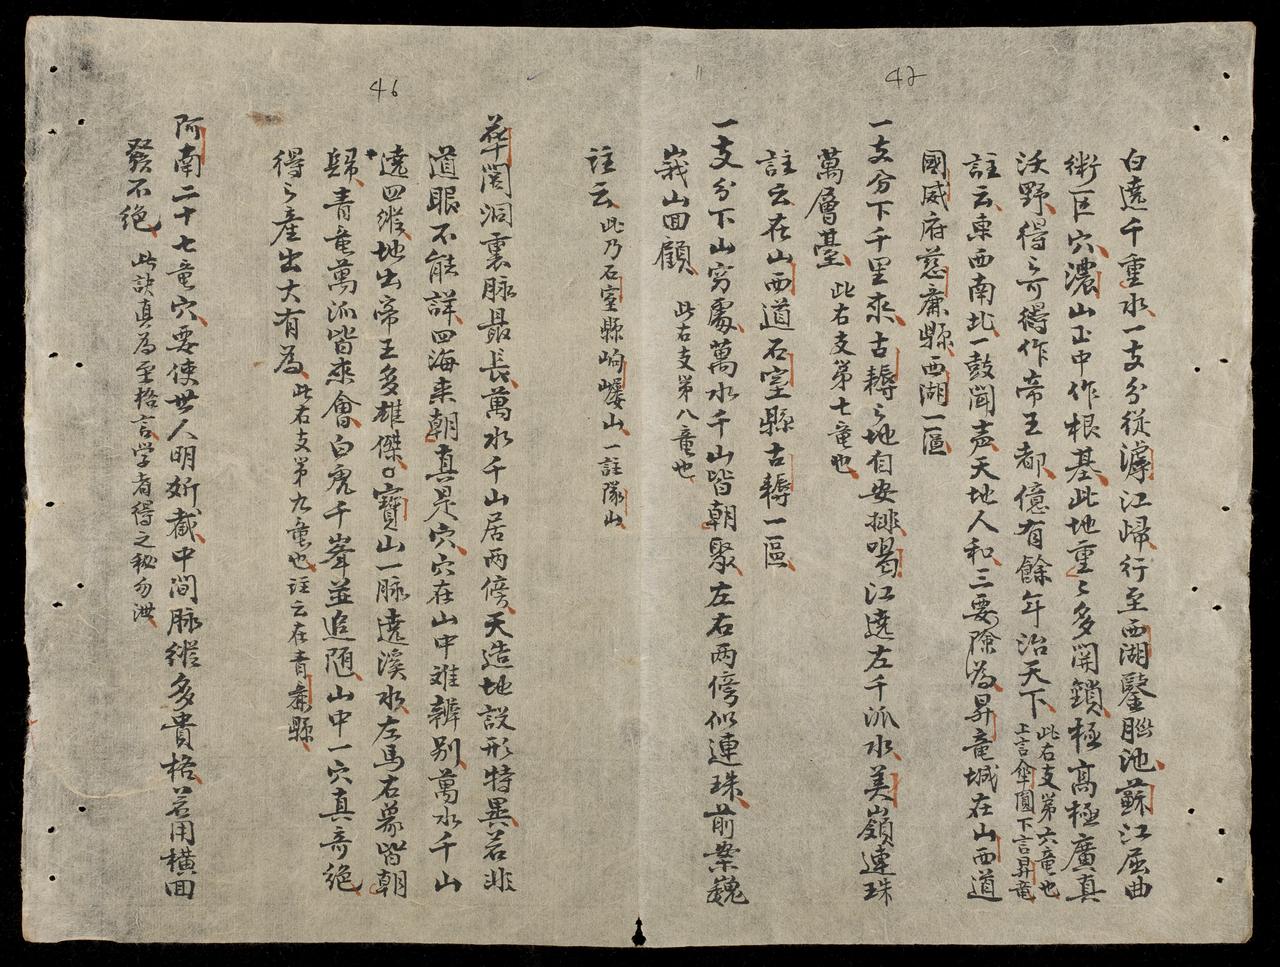 47
白遶千重水一支分従濾江歸行至西湖鑿腦池蘇江屈曲
術巨穴濃山正中作根基此地重〻多開鎖極高極廣真
沃野得〻可得作帝王都億有餘年治天下此右支第六竜也上言傘圓下言昇竜
註云東西南北一鼓聞声天地人和三要除為昇竜城在山西道
國威府慈廉縣西湖一區
一支分下千里來古耨〻地自安排喝江遶左千派水美嶺連珠
萬層臺此右支第七竜也
註云在山西道石室縣古耨一區
一支分下山穷處萬水千山皆朝聚左右两傍似連珠前案巍
峩山回顧此右支第八竜也
註云此乃石室縣崎嶁山一註隊山
46
花閭洞裏脉最長萬水千山居两傍天造地設形特異若非
道眼不能詳四海来朝真是穴穴在山中难辨别萬水千山
遶四縱地出帝王多雄傑寶山一脉遶溪水左馬右象皆朝
歸青竜萬派皆來會白虎千峯並追随山中一穴真奇絶
得〻産出大有為此右支第九竜也註云在青廉縣
阿南二十七竜穴要使世人明斫截中间脉縱多貴格若用橫回
發不絶此訣真為至格言学者得之秘勿洩